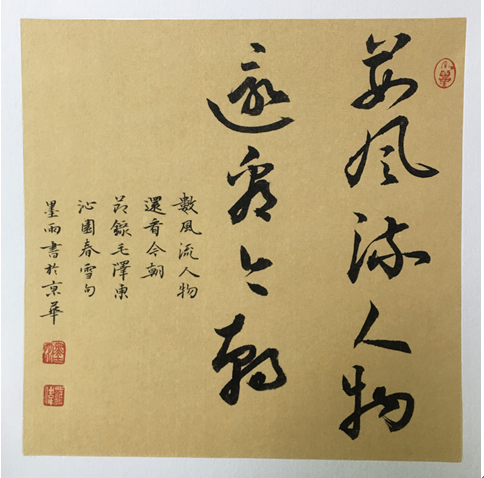 数风流人物
還看今朝
數風流人物
還看今朝
節錄毛澤東
沁園春雪句
墨雨書於京華